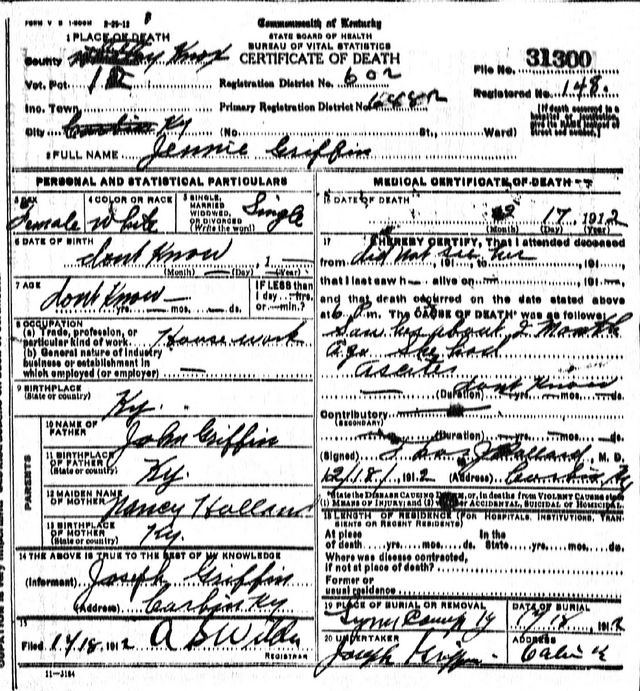 FORM V S 1-500M 2-21-12
Commonwealth of Kentucky
STATE BOARD OF HEALTH
BUREAU OF VITAL STATISTICS
CERTIFICATE OF DEATH
1 PLACE OF DEATH
County Knox
Vot. Pct.
Registration District No. 602
File No. 31300
Inc. Town
Primary Registration District No.
Registered No. 148.
[If death occurred in a hospital or institution, give its NAME instead of street and number.]
City Corbin Ky (No. St., Ward)
2 FULL NAME Jennie Griffin
PERSONAL AND STATISTICAL PARTICULARS
3 SEX Female
4 COLOR OR RACE White
5 SINGLE, MARRIED WIDOWED, OR DIVORCED (Write the word) Single
6 DATE OF BIRTH dont Know, 1
(Month) (Day) (Year)
7 AGE dont Know
yrs. mos. ds.
IF LESS than 1 day hrs. or min.?
8 OCCUPATION
(a) Trade, profession, or particular kind of work House work
(b) General nature of industry business or establishment in which employed (or employer)
9 BIRTHPLACE (State or country) Ky.
PARENTS
10 NAME OF FATHER John Griffin
11 BIRTHPLACE OF FATHER (State or country) Ky.
12 MAIDEN NAME OF MOTHER Nancy
13 BIRTHPLACE OF MOTHER (State or country) Ky.
14 THE ABOVE IS TRUE TO THE BEST OF MY KNOWLEDGE
(Informant) Joseph Griffin
(Address) Corbin Ky
15
Filed 1912 A B Wilder
REGISTRAR
11-3184
MEDICAL CERTIFICATE OF DEATH
16 DATE OF DEATH
17 1912
(Month) (Day) (Year)
17 I HEREBY CERTIFY, That I attended deceased
from did not see her, 191, to, 191,
that I last saw h alive on, 191,
and that death occurred on the date stated above
at m. The CAUSE OF DEATH was as follows:
Saw her about 2 Months
Ago She had
dont Know
(Duration) yrs. mos. ds.
Contributory
(SECONDARY)
(Duration) yrs. mos. ds.
(Signed), M. D.
12/18/1912 (Address) Corbin Ky
State the DISEASE CAUSING DEATH, or, in deaths from VIOLENT CAUSES state
(1) MEANS OF INJURY; and (2) ACCIDENTAL, SUICIDAL or HOMICIDAL.
18 LENGTH OF RESIDENCE (FOR HOSPITALS, INSTITUTIONS, TRANSIENTS OR RECENT RESIDENTS)
At place of death yrs. mos. ds. In the State yrs. mos. ds.
Where was disease contracted, if not at place of death?
Former or usual residence
19 PLACE OF BURIAL OR REMOVAL
DATE OF BURIAL
1912
20 UNDERTAKER Joseph Griffin
ADDRESS